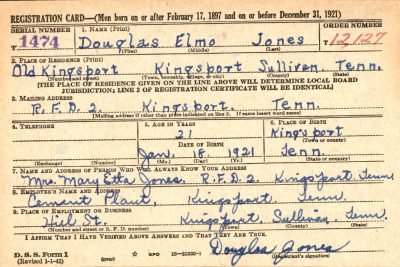 REGISTRATION CARD—(Men born on or after February 17, 1897 and on or before December 31, 1921)
SERIAL NUMBER 1. NAME (Print) ORDER NUMBER
1474 Douglas Elmo Jones 12,127
(First) (Middle) (Last)
2. PLACE OF RESIDENCE (Print)
Old Kingsport Kingsport Sullivan Tenn.
(Number and street) (Town, township, village, or city) (County) (State)
[THE PLACE OF RESIDENCE GIVEN ON THE LINE ABOVE WILL DETERMINE LOCAL BOARD
JURISDICTION; LINE 2 OF REGISTRATION CERTIFICATE WILL BE IDENTICAL]
3. MAILING ADDRESS
R.F.D. 2. Kingsport. Tenn.
[Mailing address if other than place indicated on line 2. If same insert word same]
4. TELEPHONE 5. AGE IN YEARS 6. PLACE OF BIRTH
21 Kingsport
DATE OF BIRTH (Town or county)
Jan. 18, 1921 Tenn.
(Exchange) (Number) (Mo.) (Day) (Yr.) (State or country)
7. NAME AND ADDRESS OF PERSON WHO WILL ALWAYS KNOW YOUR ADDRESS
Mrs. Mary Etta Jones, R.F.D. 2 Kingsport, Tenn
8. EMPLOYER'S NAME AND ADDRESS
Cement Plant, Kingsport, Tenn.
9. PLACE OF EMPLOYMENT OR BUSINESS
St. Kingsport, Sullivan, Tenn.
(Number and street or R. F. D. number) (Town) (County) (State)
I AFFIRM THAT I HAVE VERIFIED ABOVE ANSWERS AND THAT THEY ARE TRUE.
D. S. S. Form 1 Douglas Jones
(Revised 1-1-42) (over) GPO 16—21630-1 (Registrant's signature)